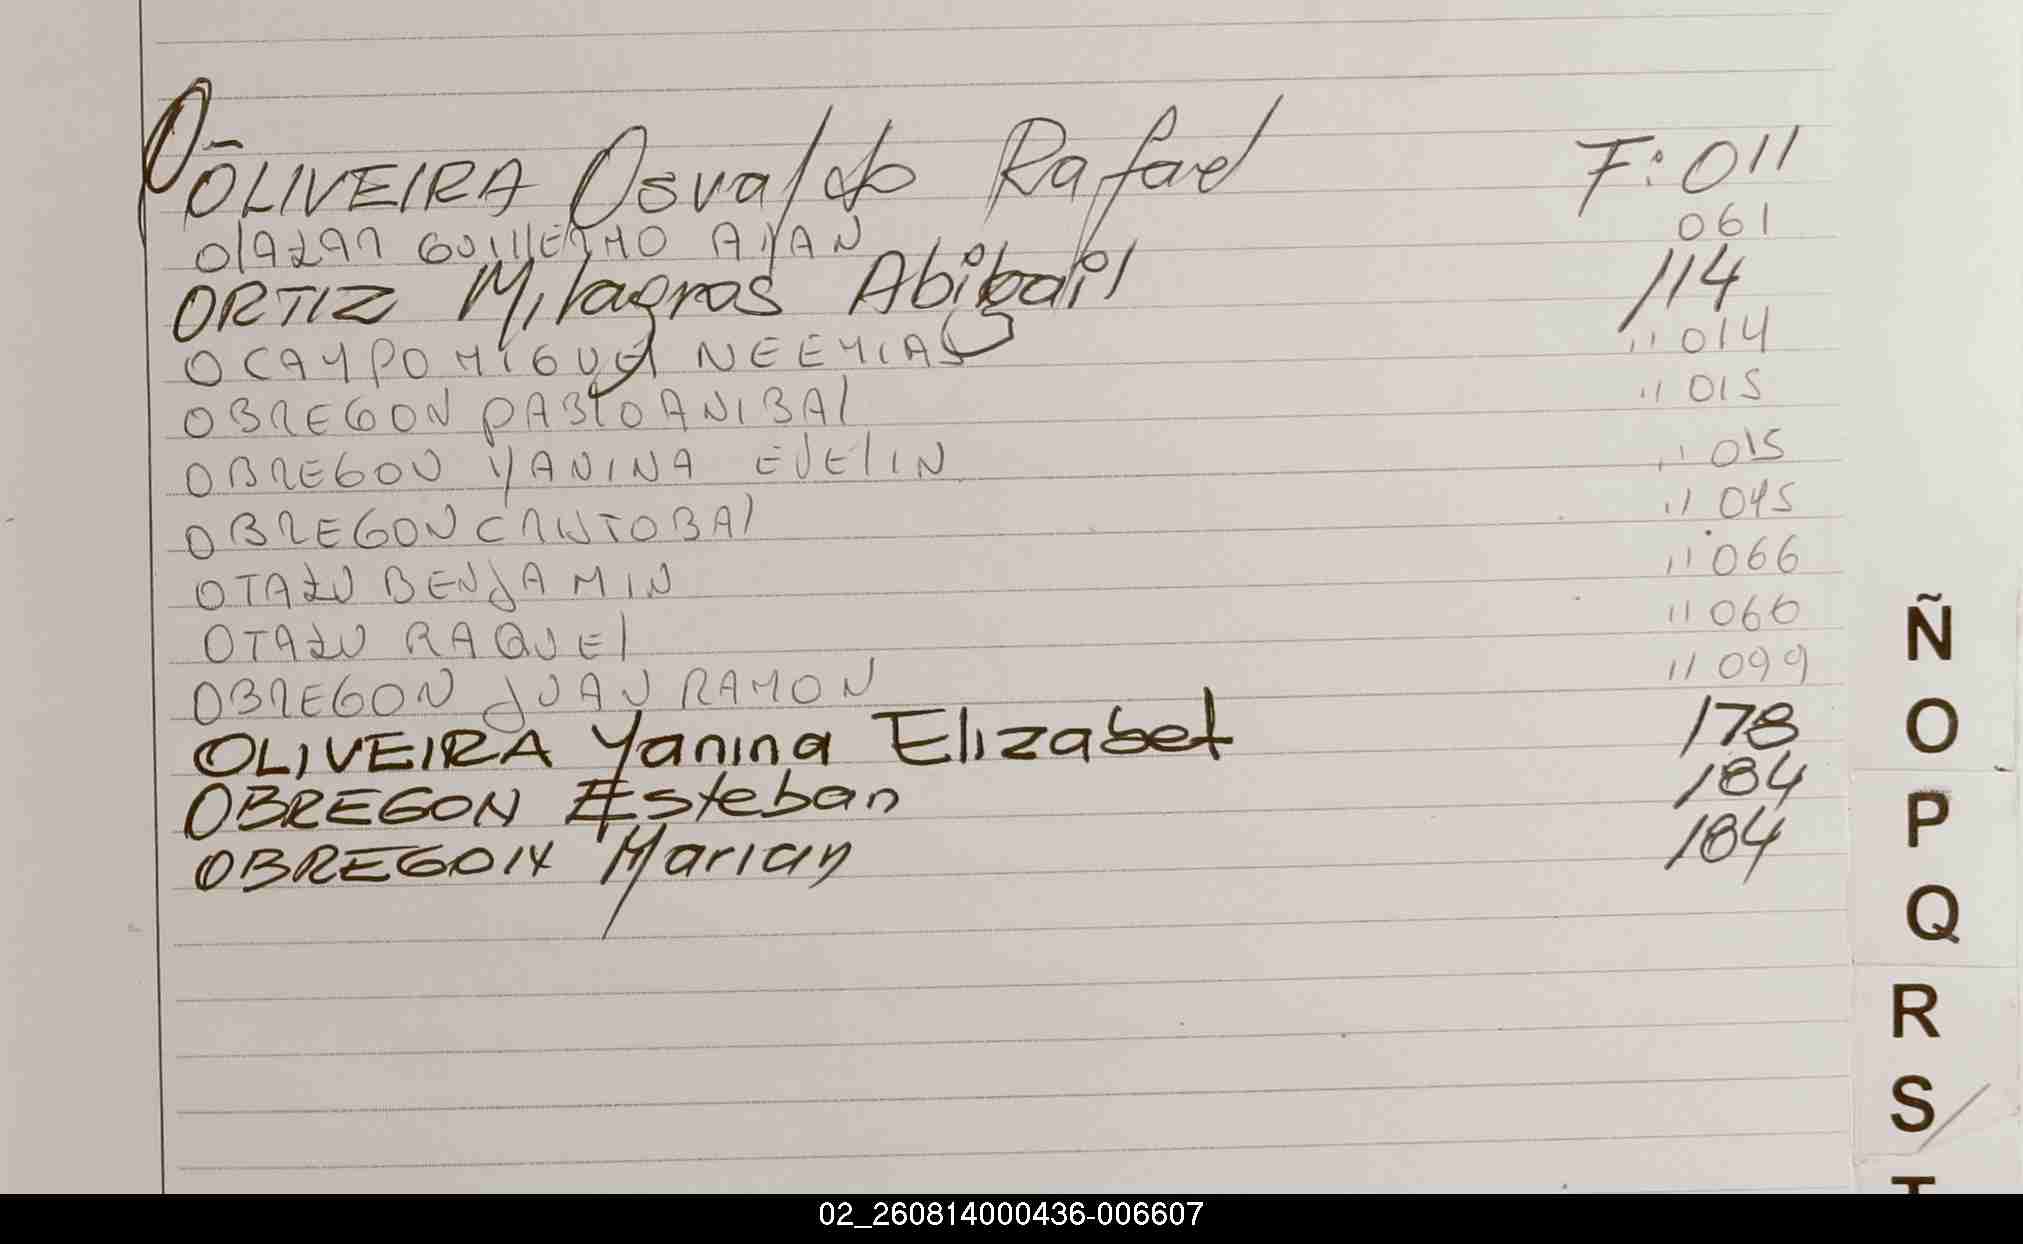 O-
OLIVEIRA Osvaldo Rafael F: 011
OlAZAR GUIllERMO AYAN 061
ORTIZ Milagros Abigail 114
OCAMPO MIGUEl NEEMIAS " 014
OBREGON PABlO ANIBAl " 015
OBREGON YANINA EVElIN " 015
OBREGON CRISTOBAl " 045
OTAZU BENJAMIN " 066
OTAZU RAQUEl " 066
OBREGON JUAN RAMON " 099
OLIVEIRA Yanina Elizabet 178
OBREGON Esteban 184
OBREGON Marian 184
Ñ
O
P
Q
R
S
T
02_260814000436-006607